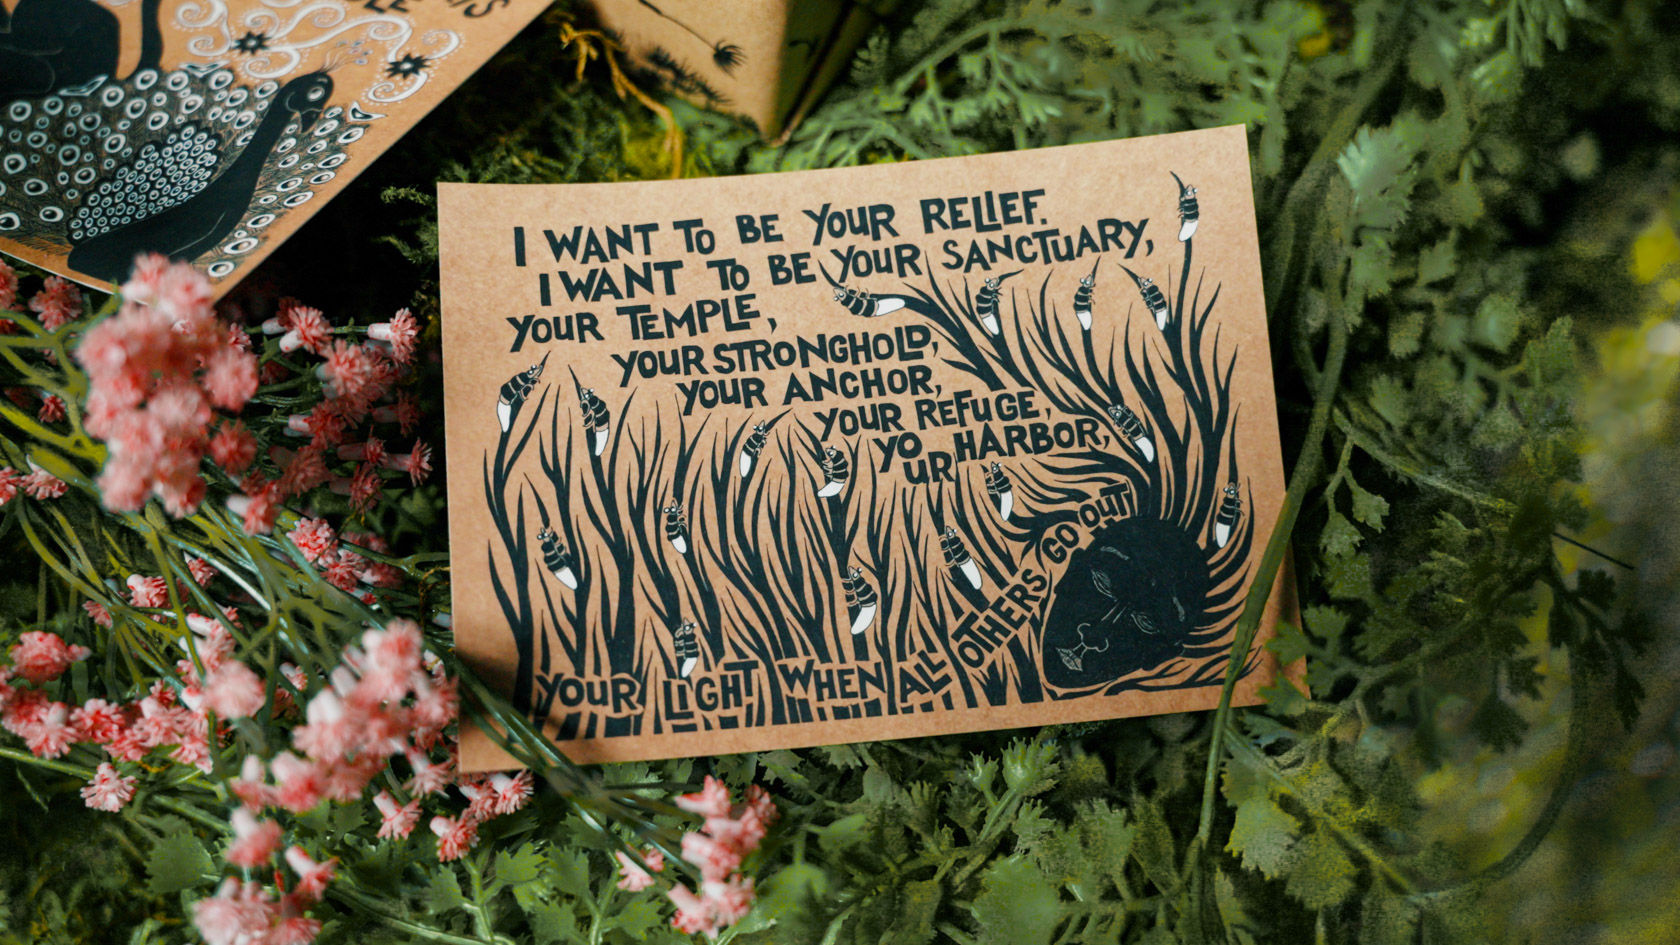 I WANT TO BE YOUR RELIEF.
I WANT TO BE YOUR SANCTUARY,
YOUR TEMPLE,
YOUR STRONGHOLD,
YOUR ANCHOR,
YOUR REFUGE,
YOUR HARBOR,
YOUR LIGHT WHEN ALL OTHERS GO OUT